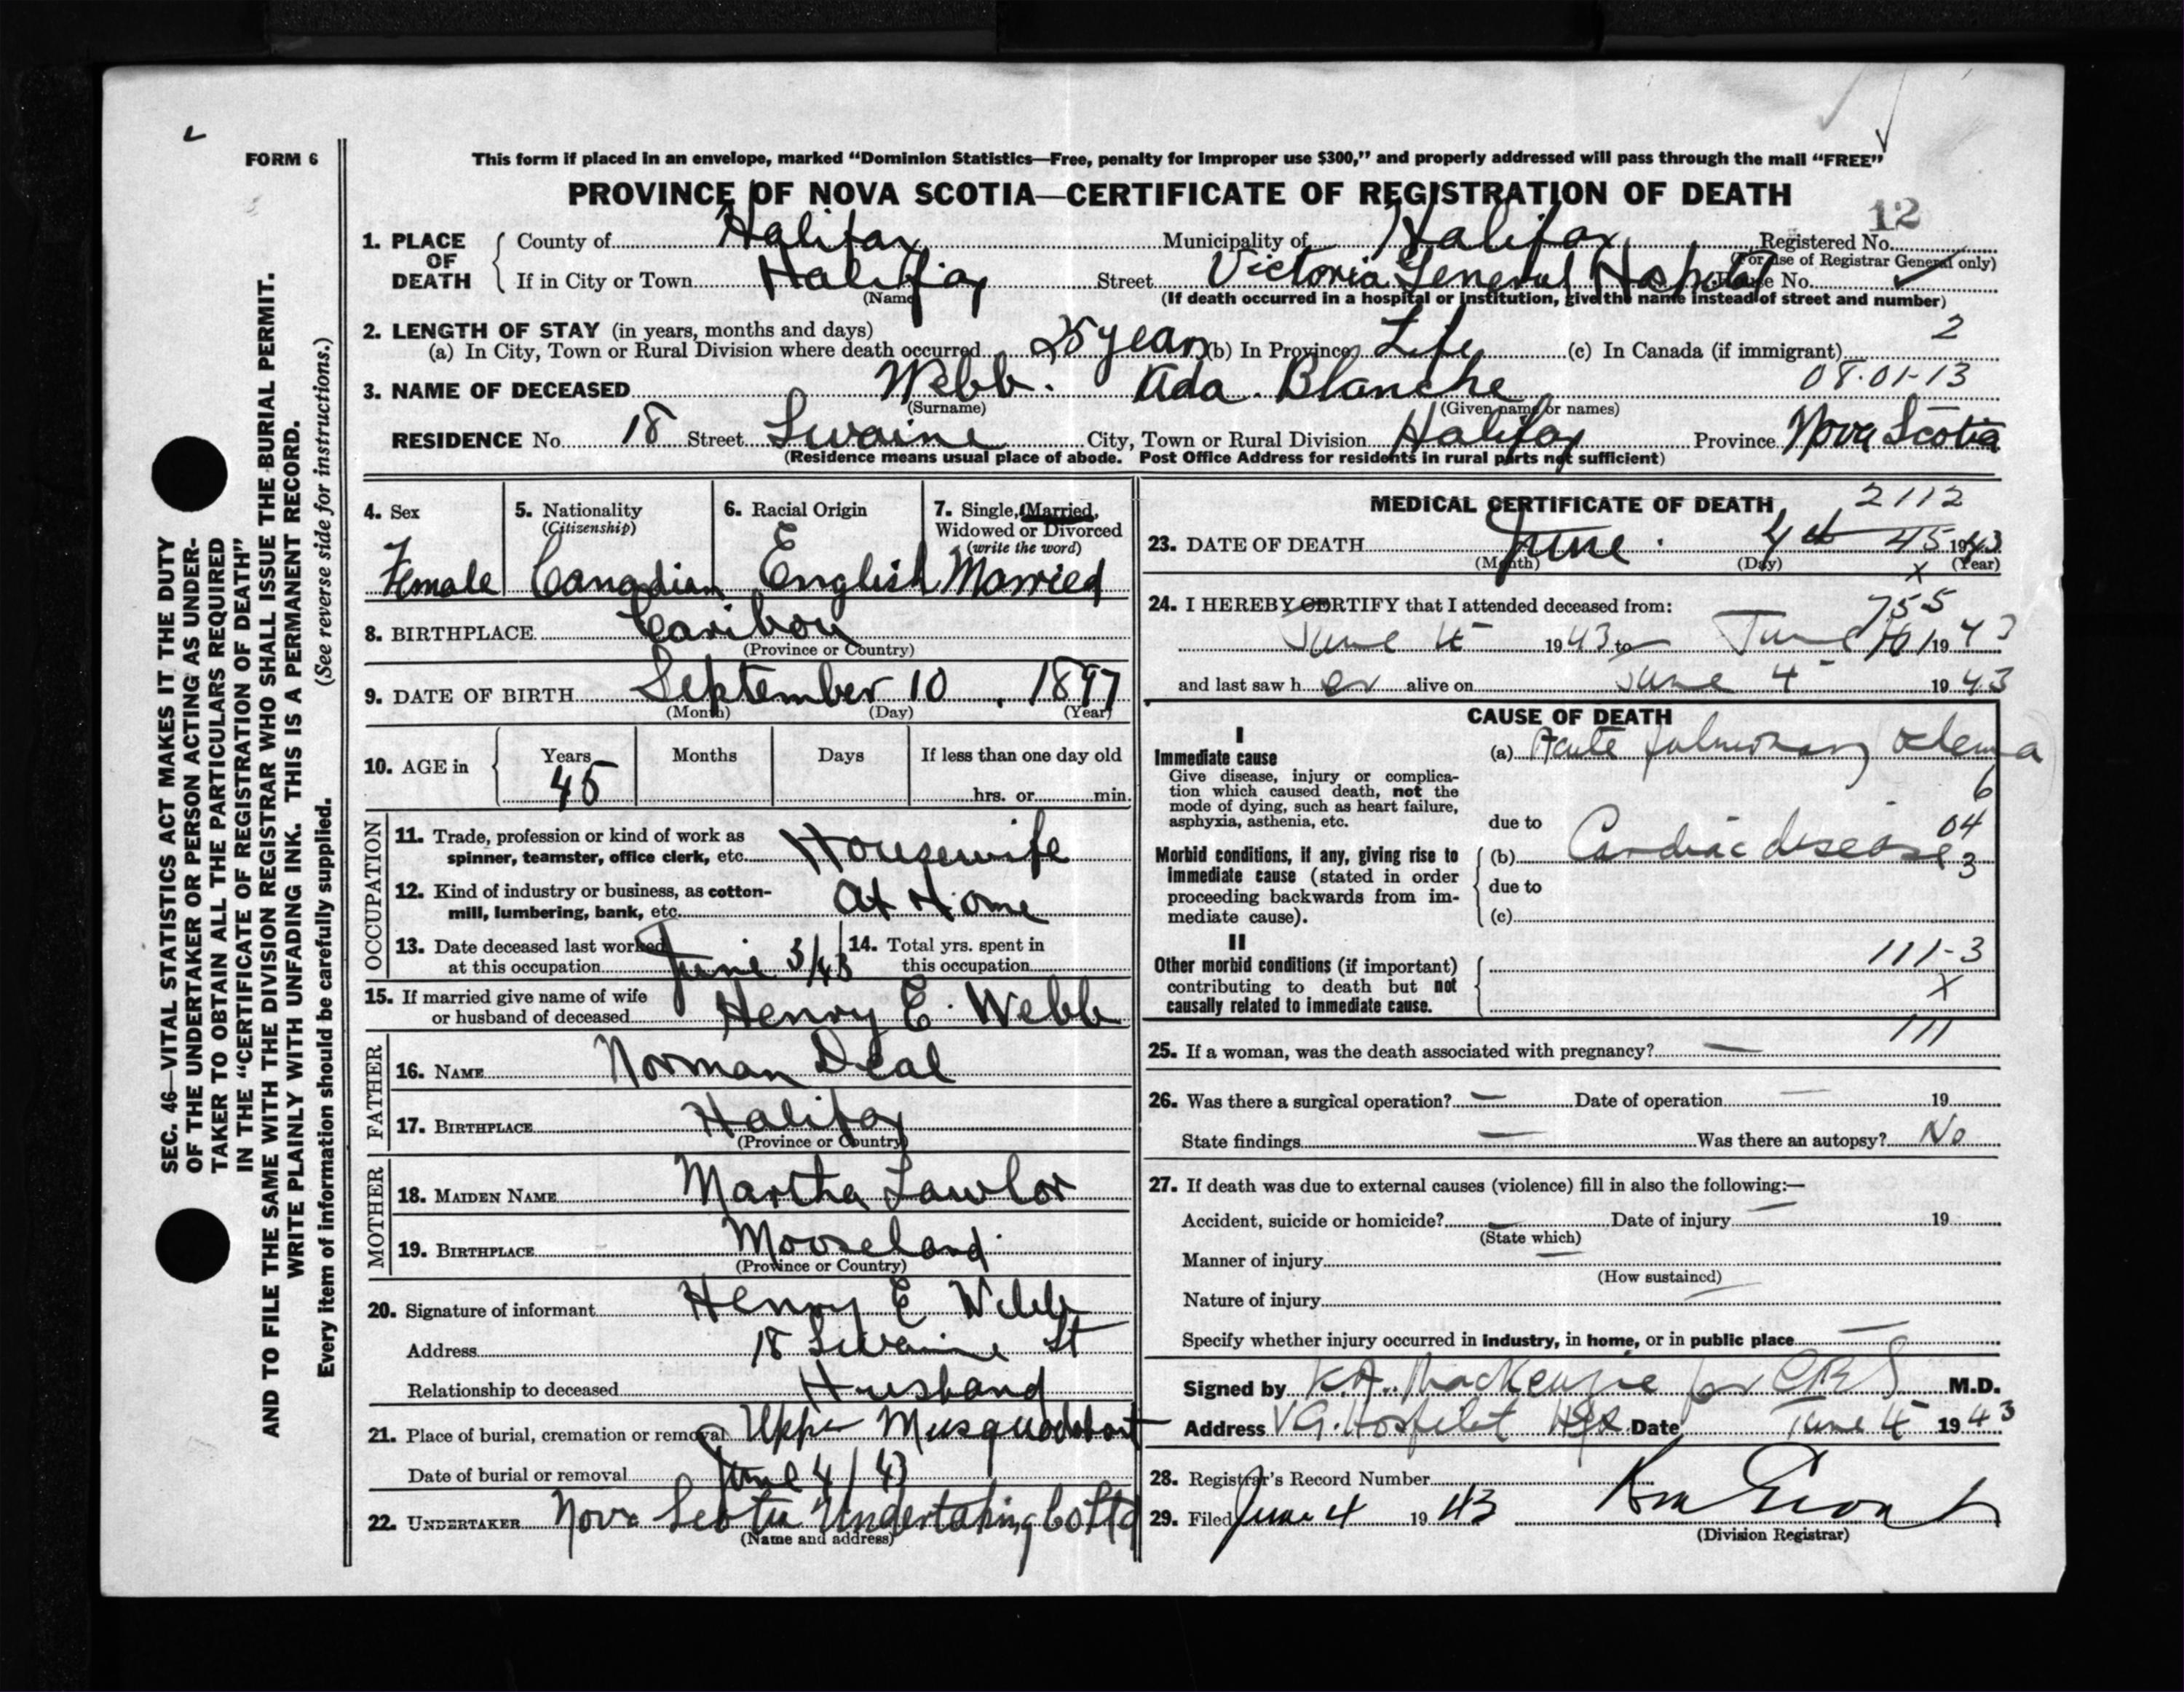 FORM 6
This form if placed in an envelope, marked “Dominion Statistics—Free, penalty for improper use $300,” and properly addressed will pass through the mail “FREE”
PROVINCE OF NOVA SCOTIA—CERTIFICATE OF REGISTRATION OF DEATH
12
1. PLACE OF DEATH County of Halifax Municipality of Halifax Registered No.
(For use of Registrar General only)
If in City or Town Halifax Street Victoria General Hospital House No.
(Name) (If death occurred in a hospital or institution, give the name instead of street and number)
2. LENGTH OF STAY (in years, months and days)
(a) In City, Town or Rural Division where death occurred 25 years (b) In Province Life (c) In Canada (if immigrant) 2
3. NAME OF DECEASED Webb. Ada. Blanche 08·01-13
(Surname) (Given name or names)
RESIDENCE No. 18 Street Swaine City, Town or Rural Division Halifax Province Nova Scotia
(Residence means usual place of abode. Post Office Address for residents in rural parts not sufficient)
4. Sex Female
5. Nationality (Citizenship) Canadian
6. Racial Origin English
7. Single, Married, Widowed or Divorced (write the word) Married
8. BIRTHPLACE Caribou
(Province or Country)
9. DATE OF BIRTH September 10, 1897
(Month) (Day) (Year)
10. AGE in Years 45 Months Days If less than one day old
hrs. or min.
OCCUPATION
11. Trade, profession or kind of work as spinner, teamster, office clerk, etc. Housewife
12. Kind of industry or business, as cotton-mill, lumbering, bank, etc. At Home
13. Date deceased last worked at this occupation June 3/43
14. Total yrs. spent in this occupation
15. If married give name of wife or husband of deceased Henry E. Webb
FATHER
16. NAME Norman Deal
17. BIRTHPLACE Halifax
(Province or Country)
MOTHER
18. MAIDEN NAME Martha Lawlor
19. BIRTHPLACE Mooseland
(Province or Country)
20. Signature of informant Henry E Webb
Address 18 Swaine St
Relationship to deceased Husband
21. Place of burial, cremation or removal Upper Musquodoboit
Date of burial or removal June 4/43
22. UNDERTAKER Nova Scotia Undertaking Co Ltd
(Name and address)
MEDICAL CERTIFICATE OF DEATH 2112
23. DATE OF DEATH June 4th 45 1943
(Month) (Day) (Year)
x
24. I HEREBY CERTIFY that I attended deceased from: 755
June 4 1943 to June 1943
and last saw her alive on June 4 1943
CAUSE OF DEATH
I
Immediate cause
Give disease, injury or complication which caused death, not the mode of dying, such as heart failure, asphyxia, asthenia, etc.
(a) Acute pulmonary edema
6
due to
04
Morbid conditions, if any, giving rise to immediate cause (stated in order proceeding backwards from immediate cause).
(b) Cardiac disease 3
due to
(c)
II
Other morbid conditions (if important) contributing to death but not causally related to immediate cause.
111-3
X
111
25. If a woman, was the death associated with pregnancy? —
26. Was there a surgical operation? — Date of operation — 19
State findings — Was there an autopsy? No
27. If death was due to external causes (violence) fill in also the following:—
Accident, suicide or homicide? — Date of injury — 19
(State which)
Manner of injury —
(How sustained)
Nature of injury —
Specify whether injury occurred in industry, in home, or in public place —
Signed by K.A. MacKenzie for M.D.
Address V.G. Hospital Hfx. Date June 4 1943
28. Registrar's Record Number
29. Filed June 4 1943
(Division Registrar)
SEC. 46—VITAL STATISTICS ACT MAKES IT THE DUTY
OF THE UNDERTAKER OR PERSON ACTING AS UNDER-
TAKER TO OBTAIN ALL THE PARTICULARS REQUIRED
IN THE “CERTIFICATE OF REGISTRATION OF DEATH”
AND TO FILE THE SAME WITH THE DIVISION REGISTRAR WHO SHALL ISSUE THE BURIAL PERMIT.
WRITE PLAINLY WITH UNFADING INK. THIS IS A PERMANENT RECORD.
Every item of information should be carefully supplied. (See reverse side for instructions.)